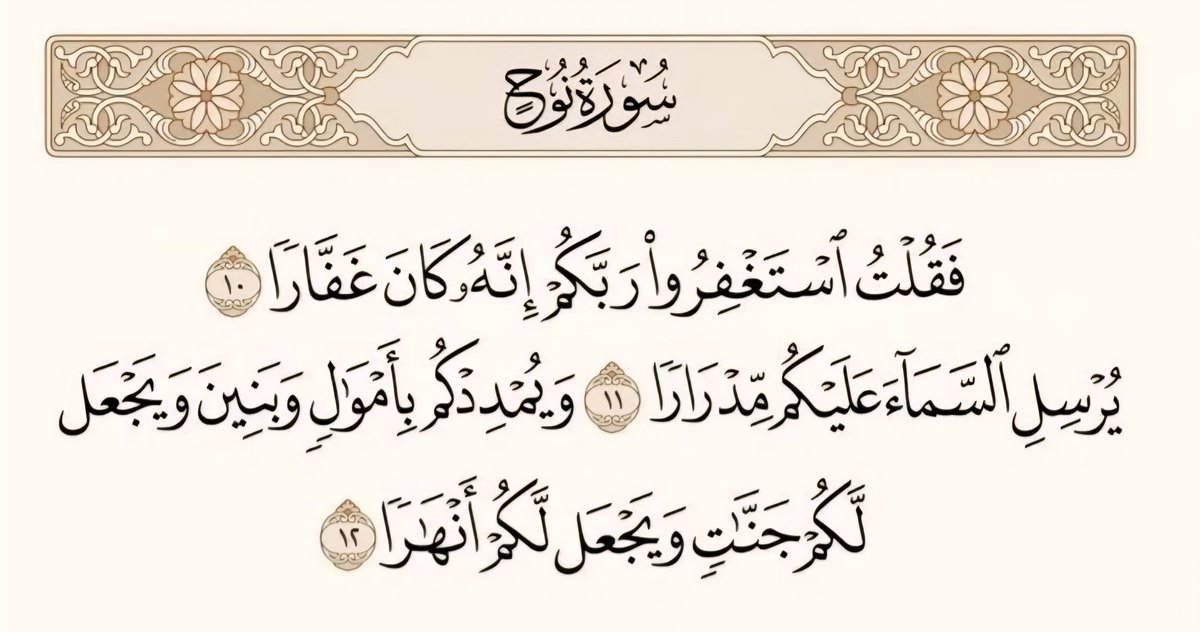 سُورَةُ نُوحٍ
فَقُلْتُ ٱسْتَغْفِرُوا۟ رَبَّكُمْ إِنَّهُۥ كَانَ غَفَّارًا ١٠
يُرْسِلِ ٱلسَّمَآءَ عَلَيْكُم مِّدْرَارًا ١١ وَيُمْدِدْكُم بِأَمْوَٰلٍ وَبَنِينَ وَيَجْعَل
لَّكُمْ جَنَّـٰتٍ وَيَجْعَل لَّكُمْ أَنْهَـٰرًا ١٢